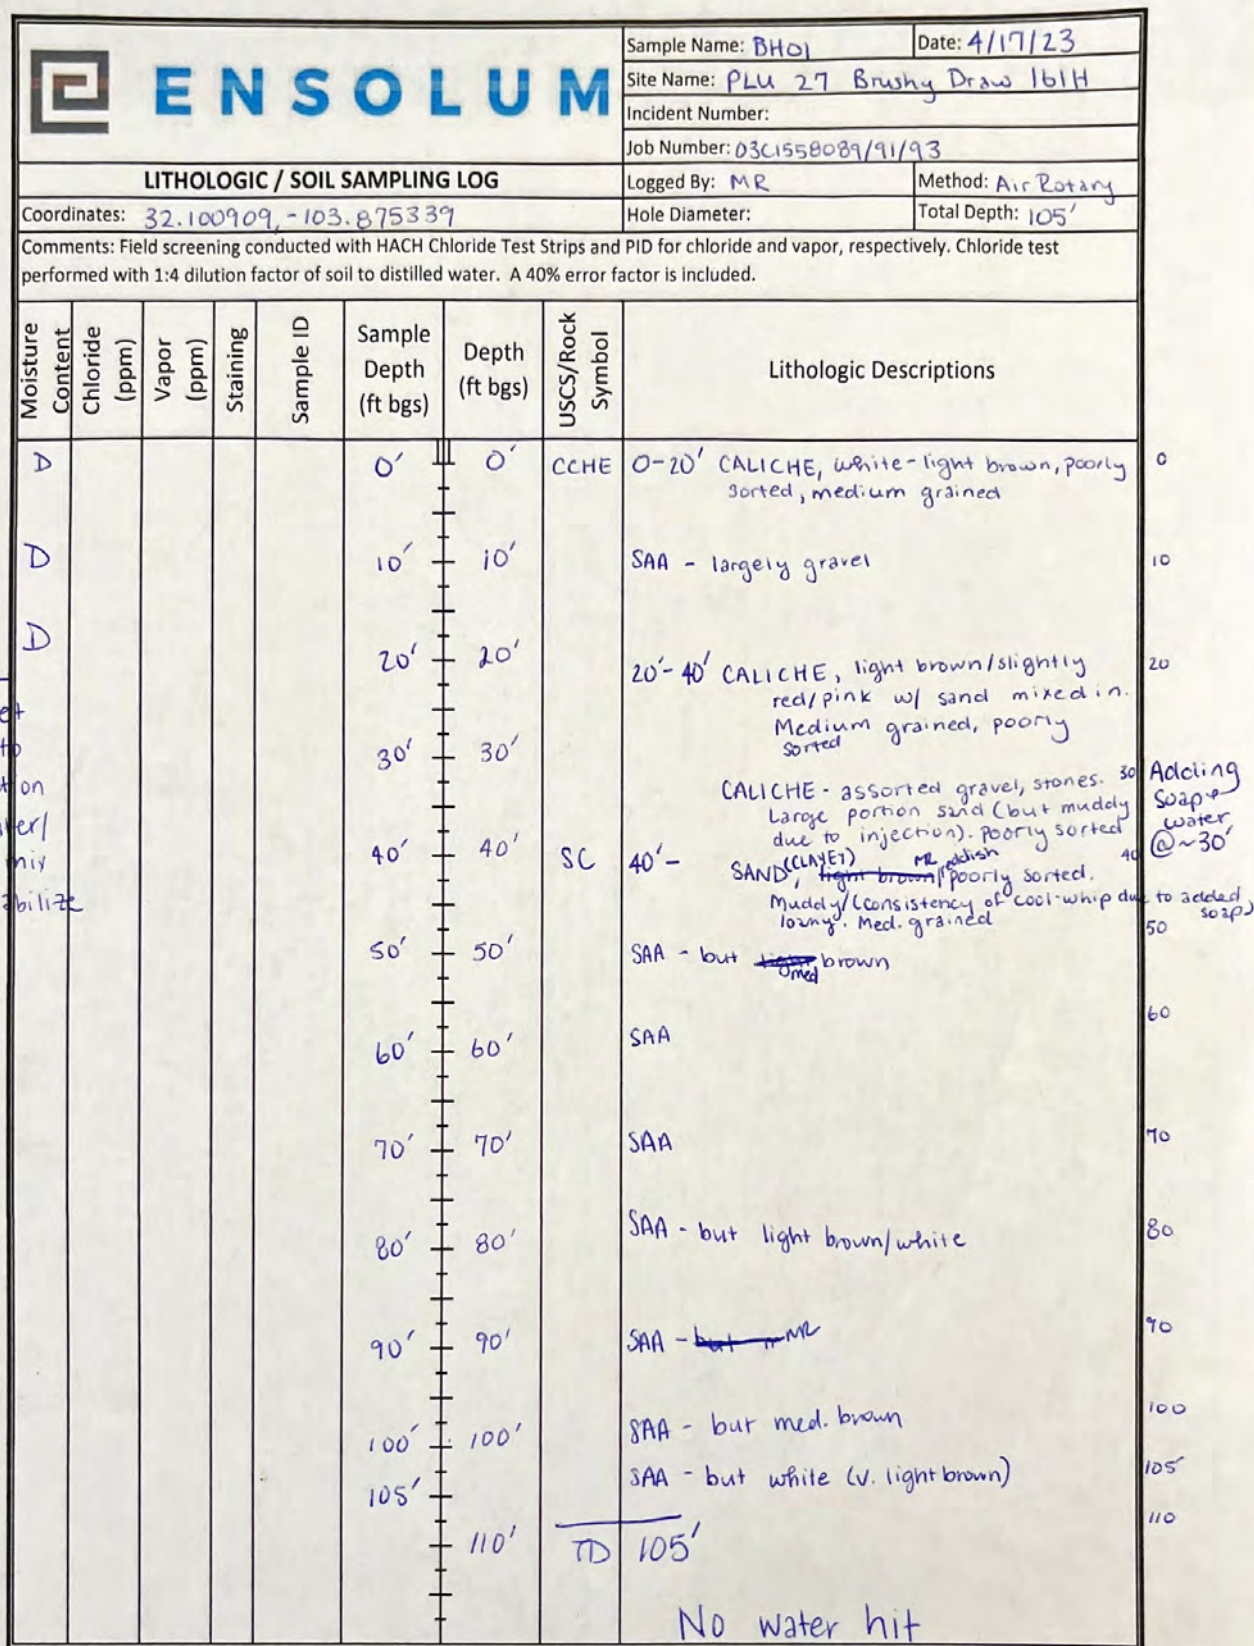 ENSOLUM
Sample Name: BH01
Date: 4/17/23
Site Name: PLU 27 Brushy Draw 161H
Incident Number:
Job Number: 03C1558089/91/93
LITHOLOGIC / SOIL SAMPLING LOG
Logged By: MR
Method: Air Rotary
Coordinates: 32.100909, -103.875339
Hole Diameter:
Total Depth: 105'
Comments: Field screening conducted with HACH Chloride Test Strips and PID for chloride and vapor, respectively. Chloride test
performed with 1:4 dilution factor of soil to distilled water. A 40% error factor is included.
Moisture
Content
Chloride
(ppm)
Vapor
(ppm)
Staining
Sample ID
Sample
Depth
(ft bgs)
Depth
(ft bgs)
USCS/Rock
Symbol
Lithologic Descriptions
D 0' 0' CCHE 0-20' CALICHE, white-light brown, poorly 0
sorted, medium grained
D 10' 10' SAA - largely gravel 10
D 20' 20' 20'-40' CALICHE, light brown/slightly 20
red/pink w/ sand mixed in.
Medium grained, poorly
sorted
30' 30'
CALICHE - assorted gravel, stones. 30 Adding
Large portion sand (but muddy soap +
due to injection). Poorly sorted water
@~30'
40' 40' SC 40'- SAND (CLAYEY), light brown MR reddish/poorly sorted. 40
Muddy/(consistency of cool-whip due to added
soap)
loamy. Med. grained
50
50' 50' SAA - but light med brown
60
60' 60' SAA
70' 70' SAA 70
80' 80' SAA - but light brown/white 80
90' 90' SAA - but MR 90
100' 100' SAA - but med. brown 100
105' SAA - but white (v. light brown) 105'
110' TD 105' 110
No water hit
et
to
on
ter/
mix
abilize